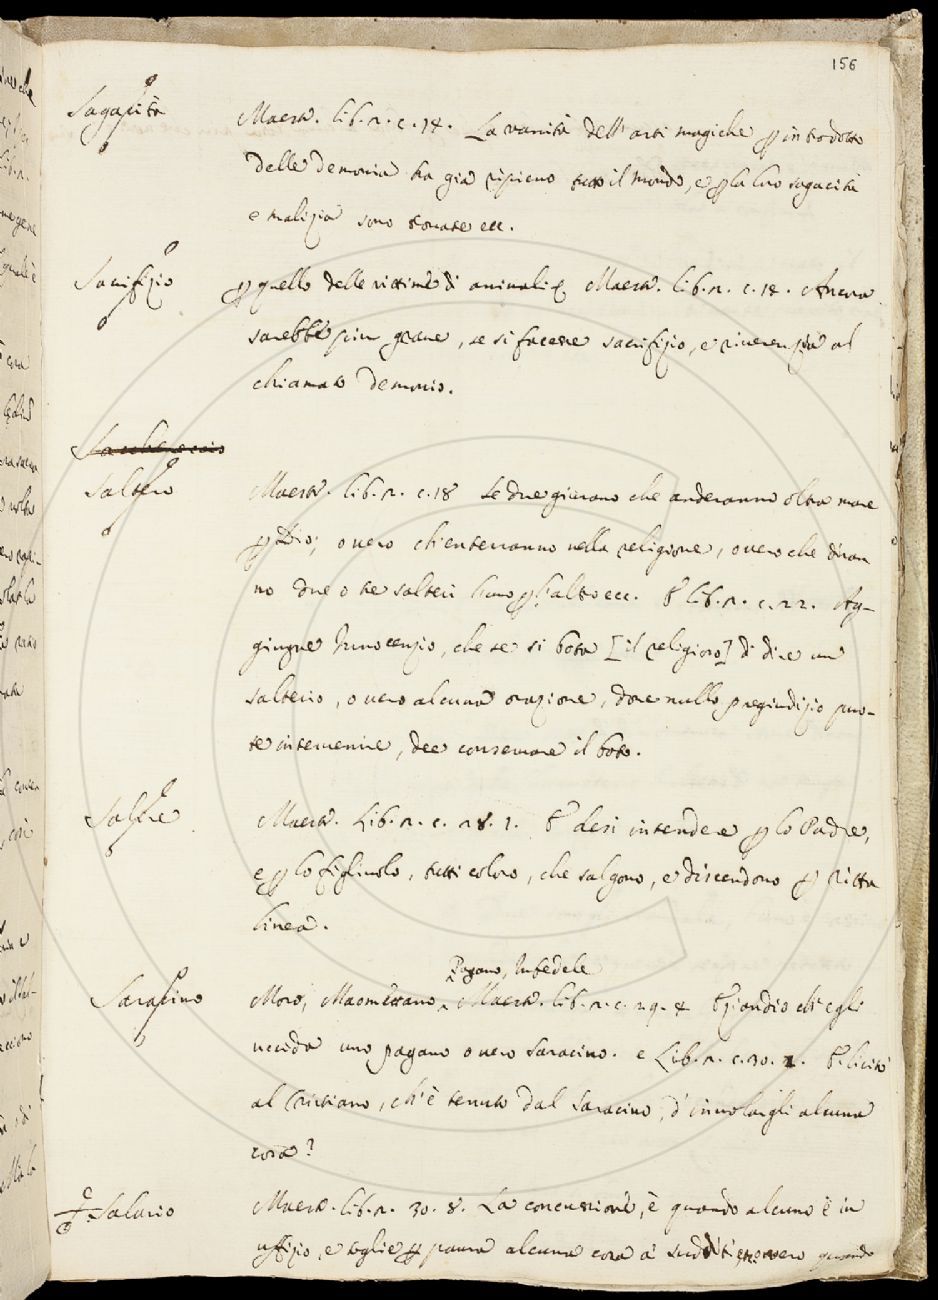 156
Sagacità Maestr. lib. 2. c. 14. La vanità dell'arti magiche p introdotto
delle demonia ha già ripieno tutto il mondo, e p la loro sagacità
e malizia sono trovate ecc.
Sacrifizio p quello delle vittime di animali Maestr. lib. 2. c. 14. Ancora
sarebbe più grave, se si facesse sacrifizio, e riverenzia al
chiamato demonio.
Saltero Maestr. lib. 2. c. 18 Se due giurano che anderanno oltra mare
p Dio; overo ch'enterranno nella religione, overo che diran
no due o tre salteri l'uno p l'altro ecc. E lib. 2. c. 22. Ag-
giugne Innocenzio, che se si bota [il religioso] di dire un
salterio, overo alcuna orazione, dove nullo pregiudizio puo-
te intervenire, dee conservare il boto.
Salire Maestr. Lib. 2. c. 28. 1. E desi intendere p lo Padre,
e p lo figliuolo, tutti coloro, che salgono, e discendono p ritta
linea.
Pagano, Infedele
Saracino Moro, Maomettano, Maestr. lib. 2. c. 29. 4 Eziandio ch'egli
uccida uno pagano overo Saracino. e Lib. 2. c. 30. 2. E' licito
al Cristiano, ch'è tenuto dal Saracino, d'involargli alcuna
cosa?
Salario Maestr. lib. 2. 30. 8. La concussione, è quando alcuno è in
uffizio, e toglie p paura alcuna cosa a' sudditi, overo quando